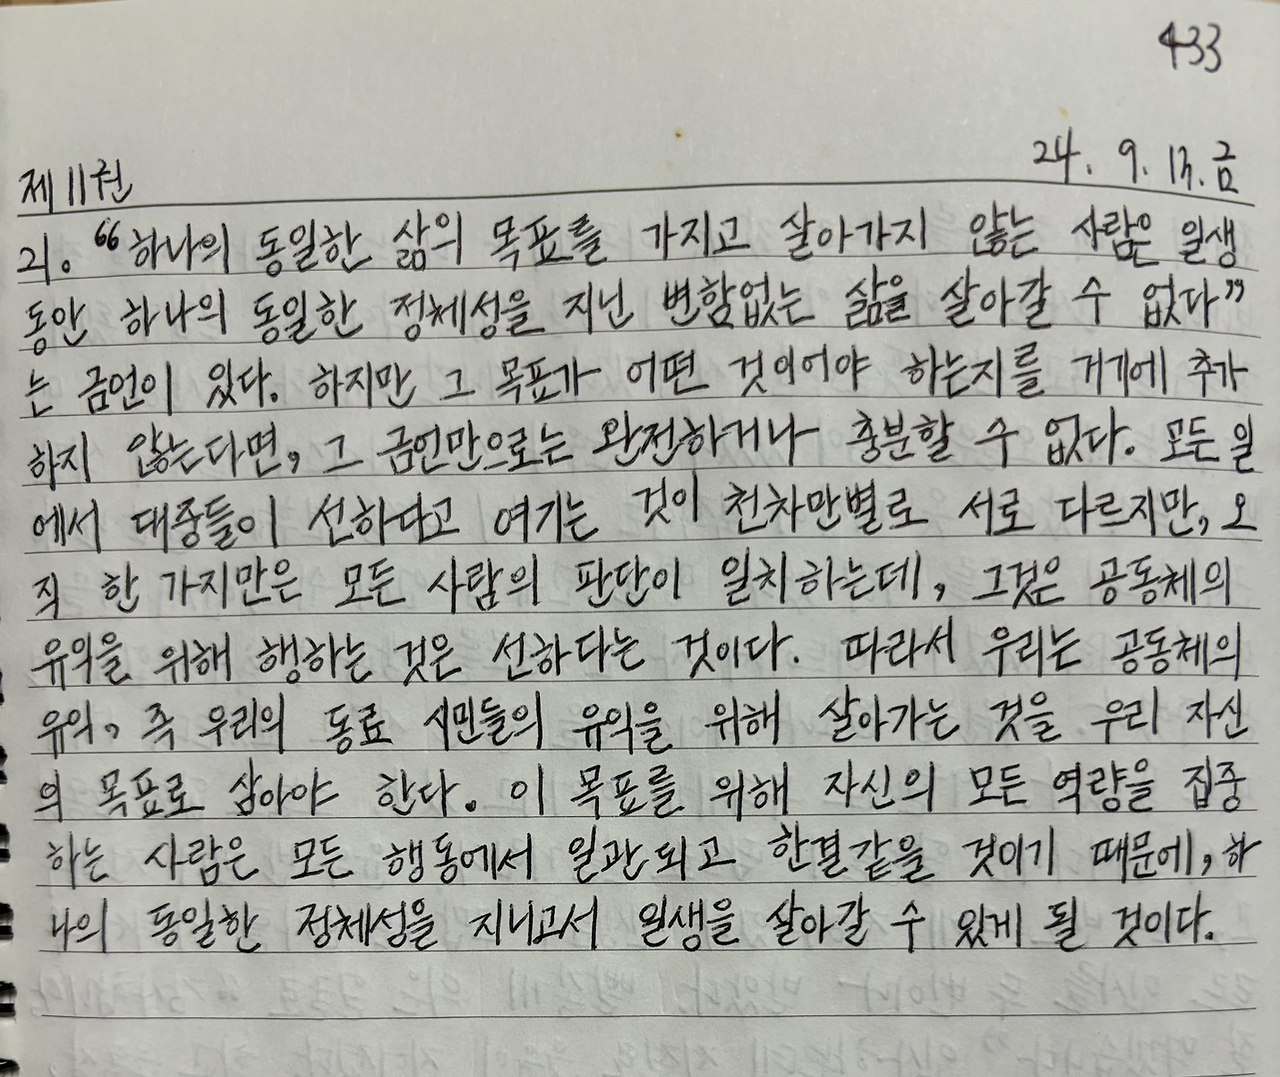 433
24. 9. 13. 금
제11권
21. “하나의 동일한 삶의 목표를 가지고 살아가지 않는 사람은 일생
동안 하나의 동일한 정체성을 지닌 변함없는 삶을 살아갈 수 없다”
는 금언이 있다. 하지만 그 목표가 어떤 것이어야 하는지를 거기에 추가
하지 않는다면, 그 금언만으로는 완전하거나 충분할 수 없다. 모든 일
에서 대중들이 선하다고 여기는 것이 천차만별로 서로 다르지만, 오
직 한 가지만은 모든 사람의 판단이 일치하는데, 그것은 공동체의
유익을 위해 행하는 것은 선하다는 것이다. 따라서 우리는 공동체의
유익, 즉 우리의 동료 시민들의 유익을 위해 살아가는 것을 우리 자신
의 목표로 삼아야 한다. 이 목표를 위해 자신의 모든 역량을 집중
하는 사람은 모든 행동에서 일관되고 한결같을 것이기 때문에, 하
나의 동일한 정체성을 지니고서 일생을 살아갈 수 있게 될 것이다.